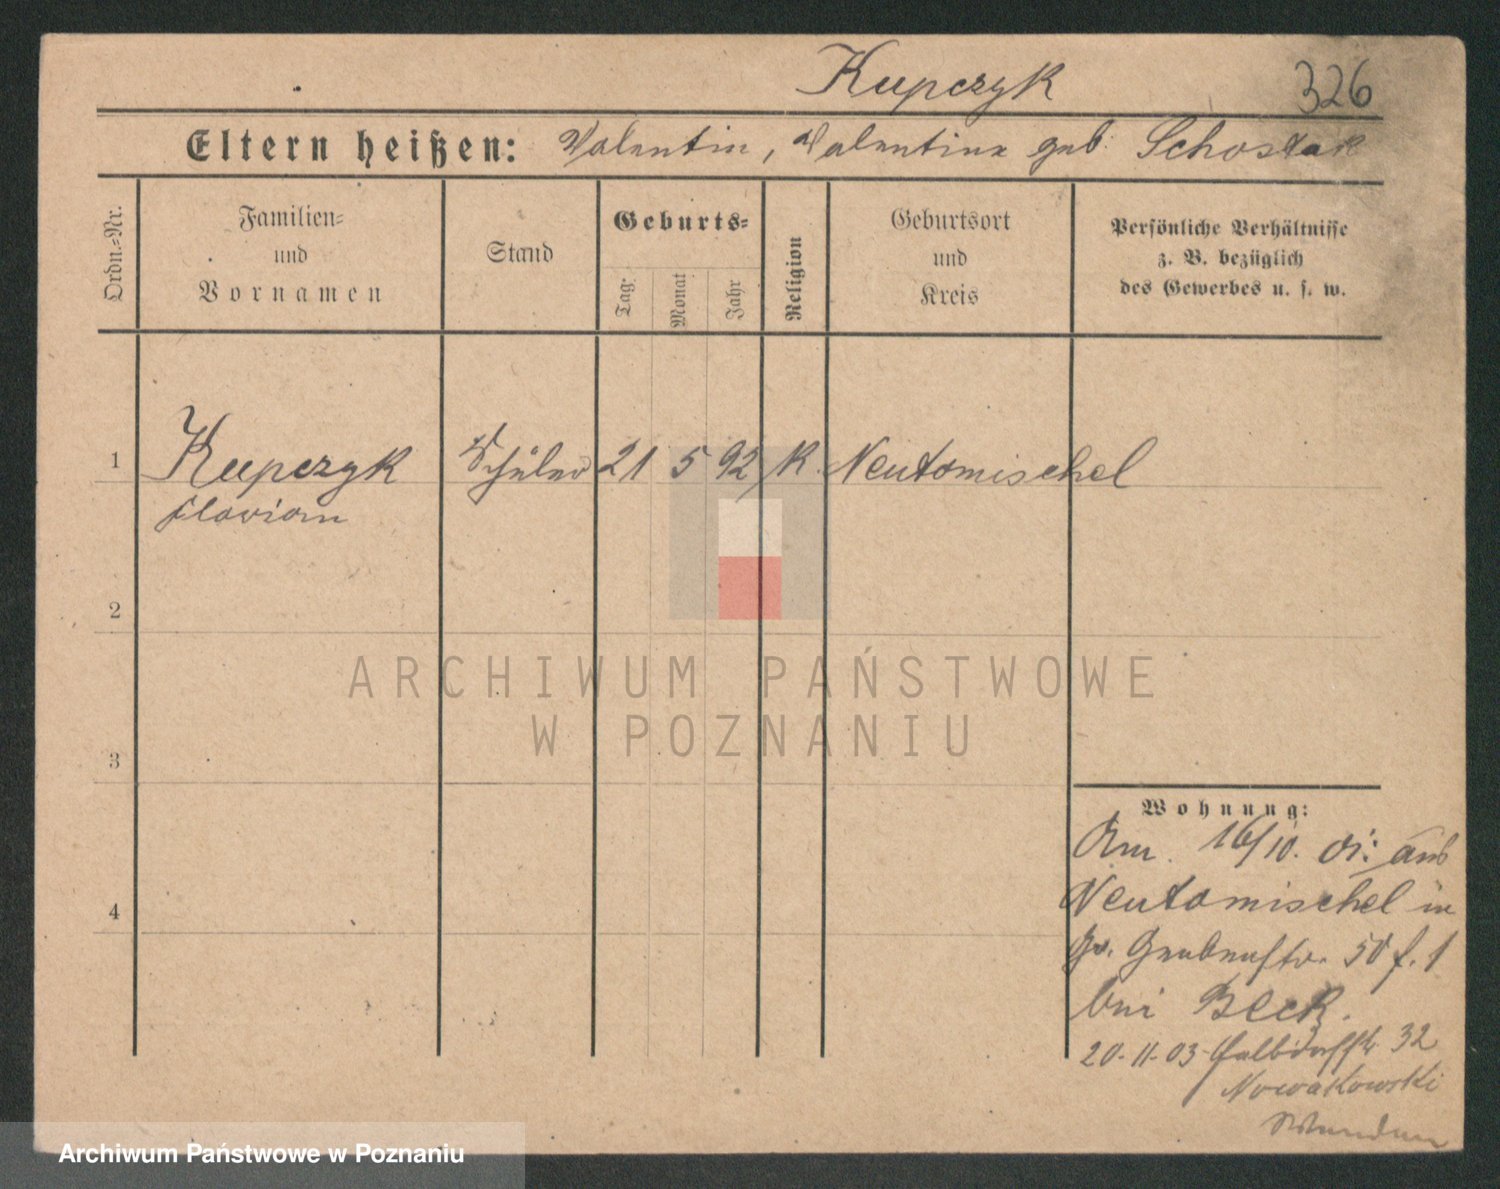 Kupczyk 326
Eltern heißen: Valentin, Valentine geb. Schostak
Ordn.=Nr.
Familien=
und
Vornamen
Stand
Geburts=
Tag:
Monat
Jahr
Religion
Geburtsort
und
Kreis
Persönliche Verhältnisse
z. B. bezüglich
des Gewerbes u. s. w.
1 Kupczyk Schüler 21 5 92 K. Neutomischel
Flavian
2
ARCHIWUM PAŃSTWOWE
W POZNANIU
3
Wohnung:
Am 16/10. 01: aus
4 Neutomischel in
Grabenstr. 50 f. 1
bei Beck.
20-11-03 Halbdorfstr. 32
Nowakowski
Archiwum Państwowe w Poznaniu